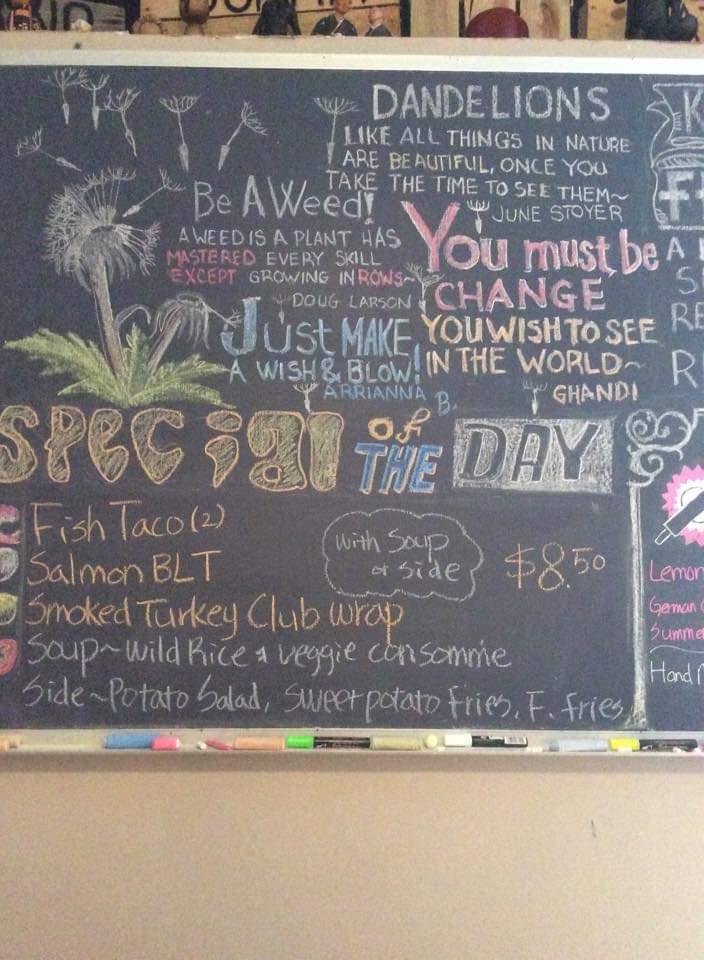 DANDELIONS
LIKE ALL THINGS IN NATURE
ARE BEAUTIFUL, ONCE YOU
TAKE THE TIME TO SEE THEM~
JUNE STOYER
Be A Weed!
A WEED IS A PLANT HAS
MASTERED EVERY SKILL
EXCEPT GROWING IN ROWS~
DOUG LARSON
You must be
CHANGE
YOU WISH TO SEE
IN THE WORLD~
GHANDI
JUST MAKE
A WISH & BLOW!
ARRIANNA B.
SPECIAL OF THE DAY
Fish Taco (2)
Salmon BLT
Smoked Turkey Club wrap
With Soup
or Side
$8.50
Soup~Wild Rice & veggie consommie
Side~Potato Salad, sweet potato fries, F. fries
Lemon
German
Summer
Hand